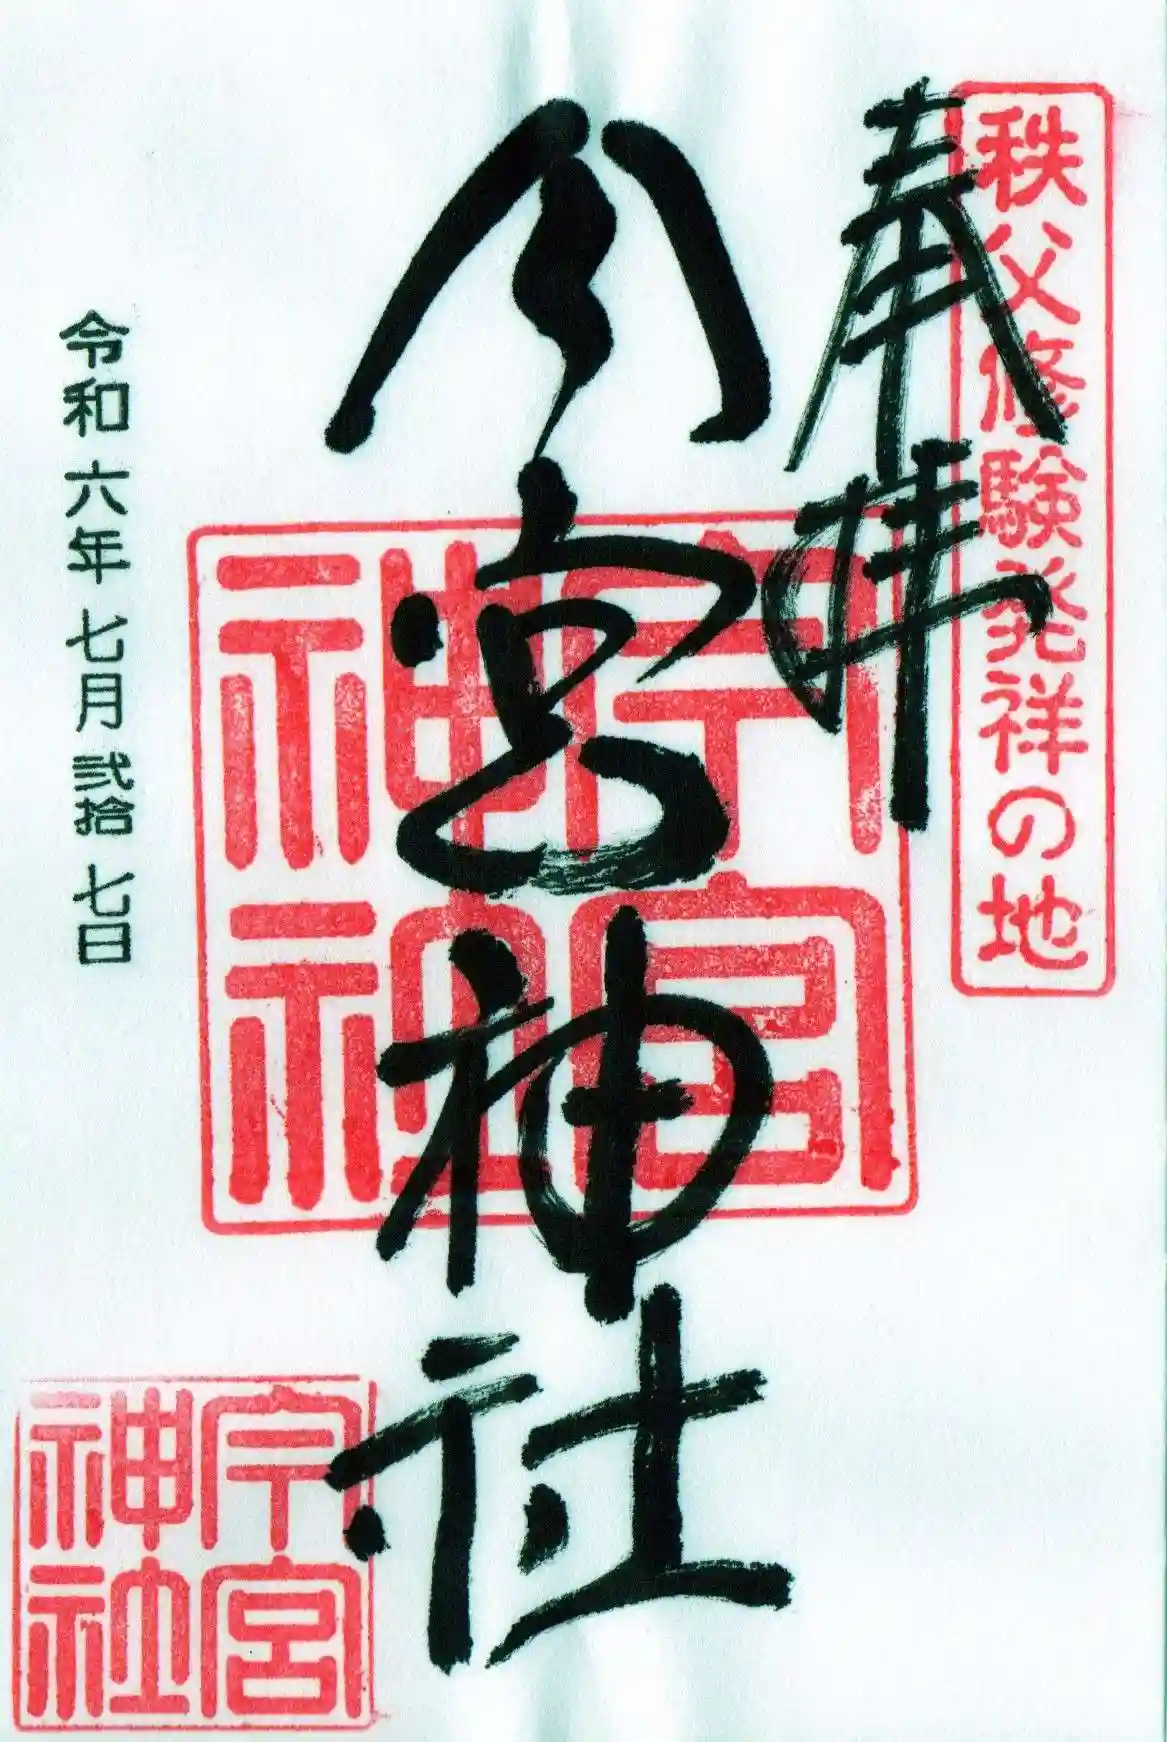 秩父修験発祥の地
奉拝
今宮神社
今宮
神社
令和六年七月弐拾七日
今宮
神社